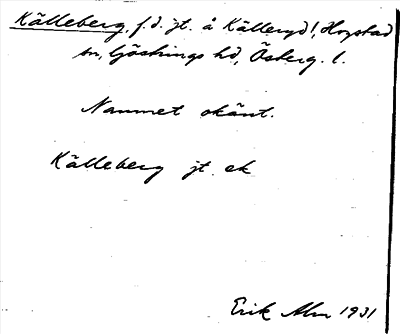 Källeberg, f.d. jt. å Källeryd!, Hogstad
sn, Göstrings hd, Österg. l.
Namnet okänt.
Källeberg jt. ek
Erik Alm 1931